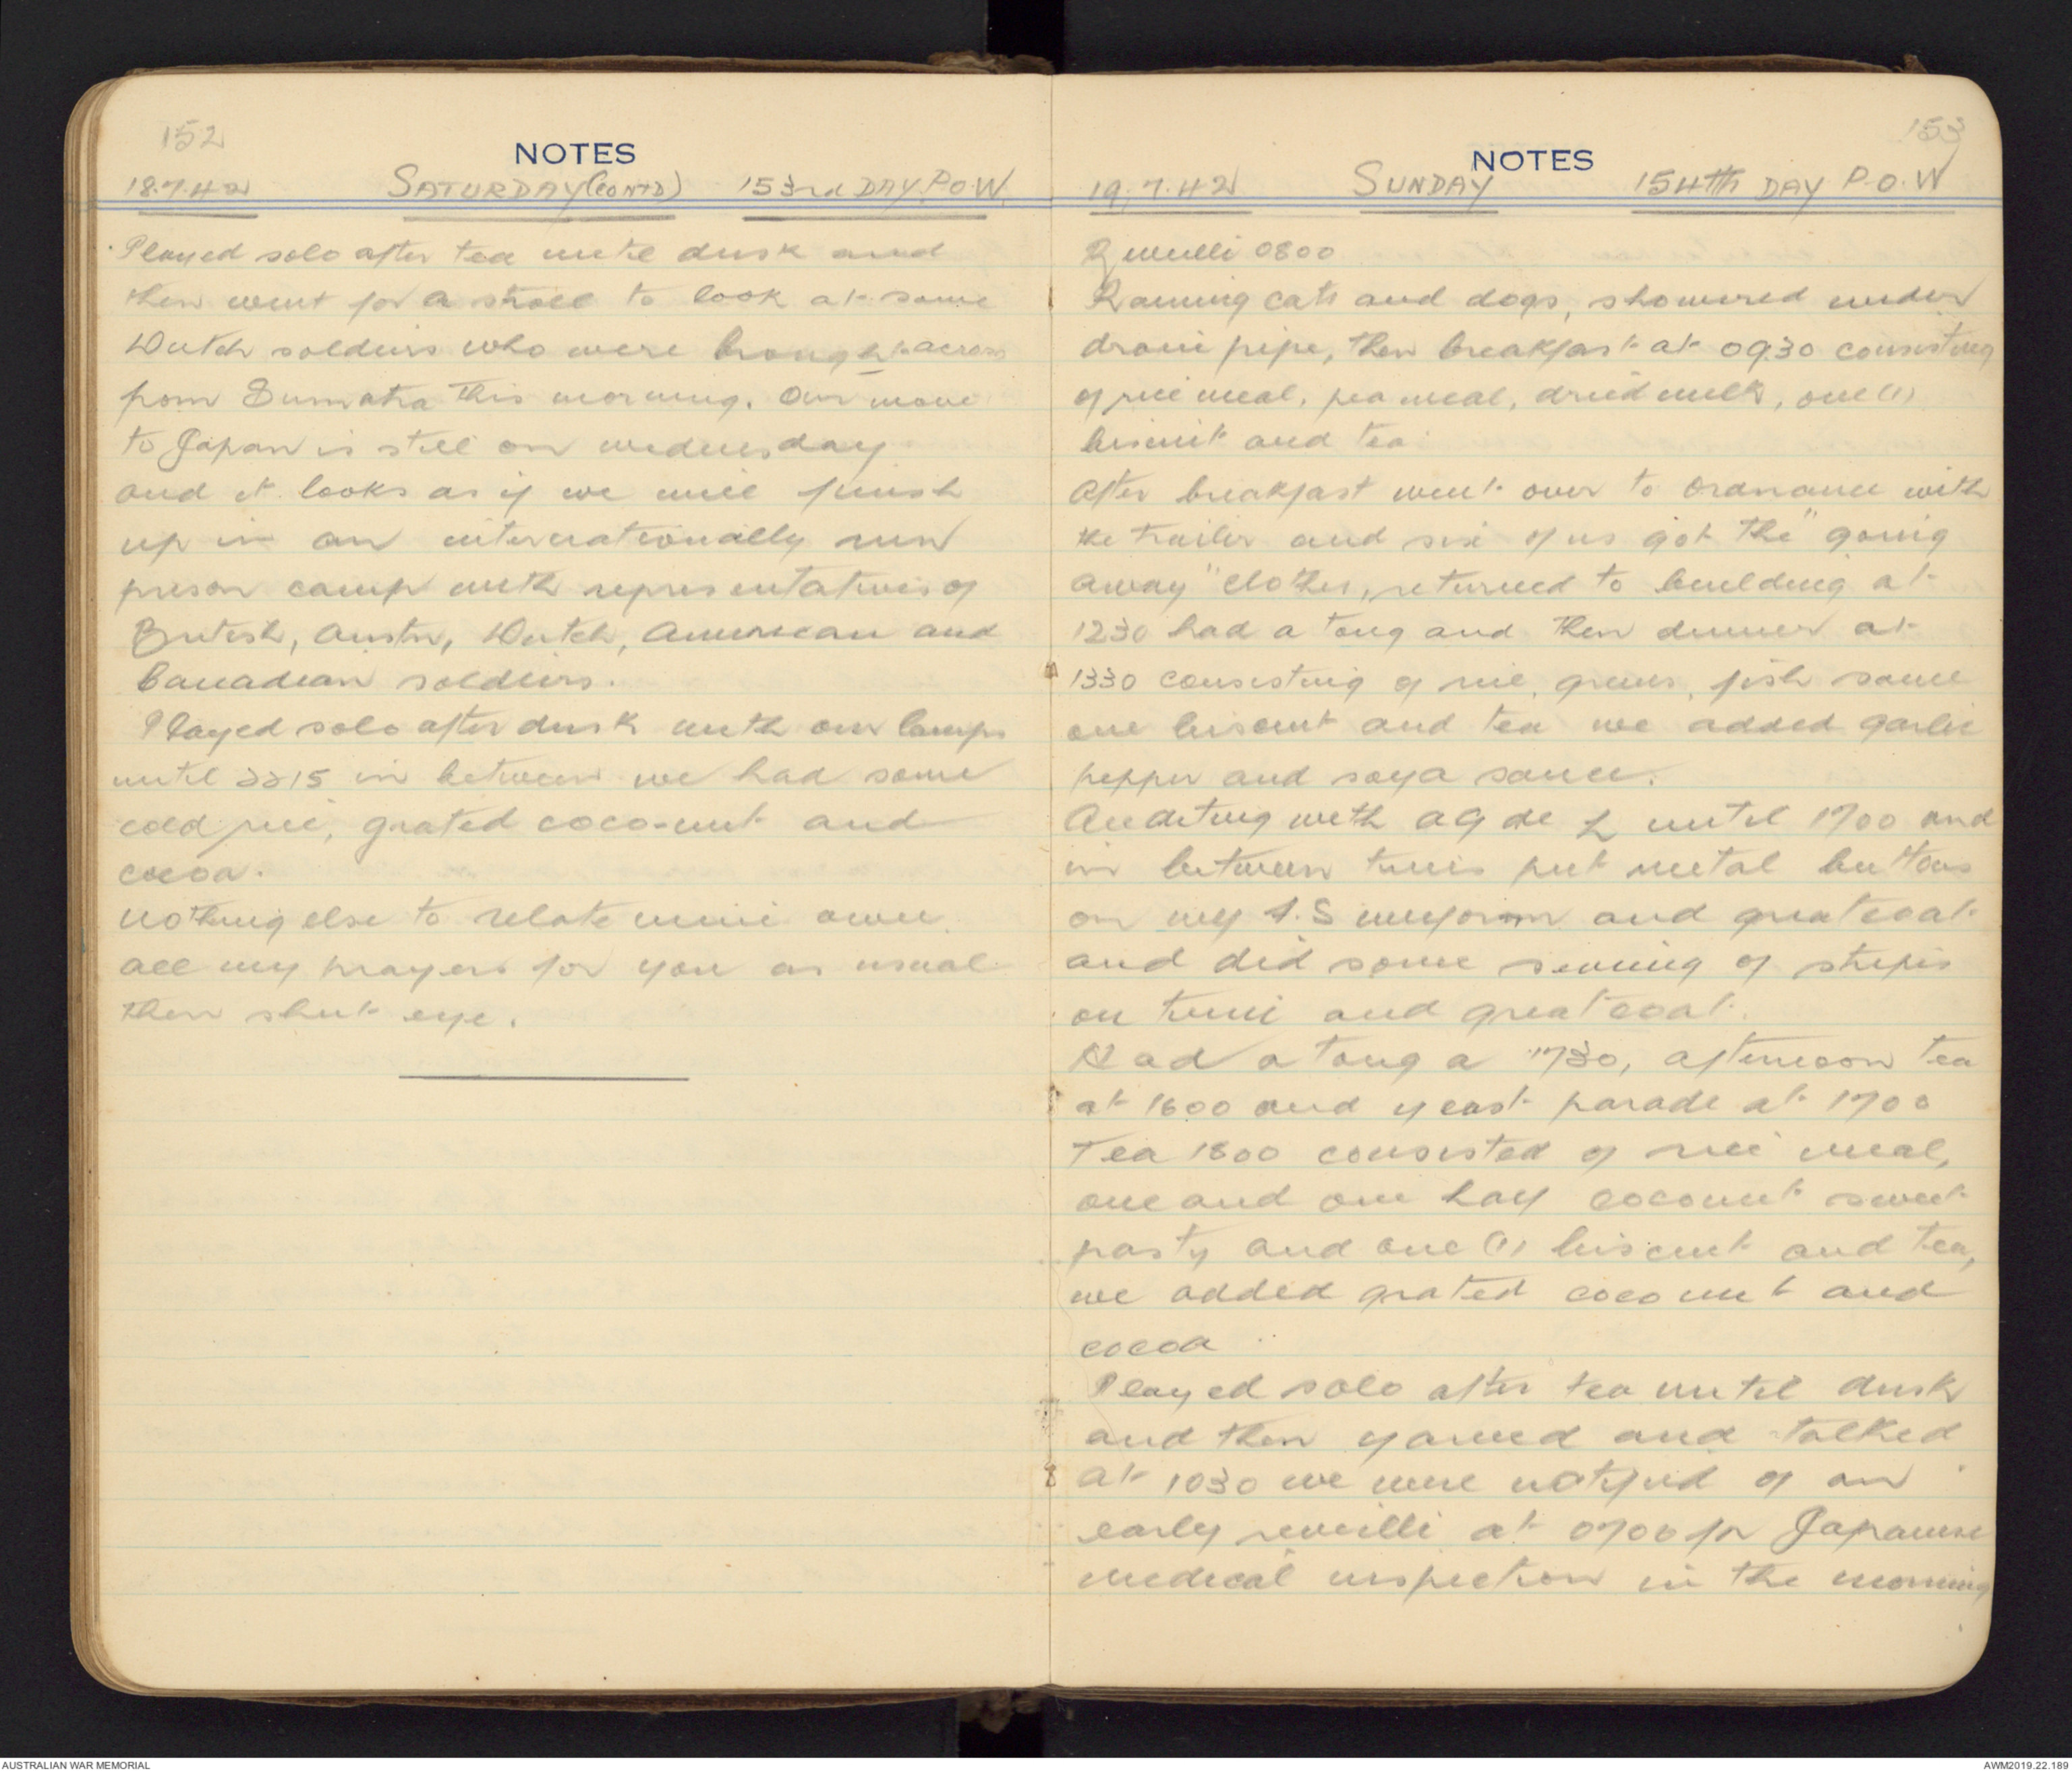 152
NOTES
18.7.42 SATURDAY (CONTD) 153rd DAY P.O.W.
Played solo after tea until dusk and
then went for a stroll to look at some
Dutch soldiers who were brought across
from Sumatra this morning. Our move
to Japan is still on wednesday
and it looks as if we will finish
up in an internationally run
prison camp with representatives of
British, Austn, Dutch, American and
Canadian soldiers.
Played solo after dusk with our lamps
until 2215 in between we had some
cold rice, grated coco-nut and
cocoa.
nothing else to relate mine own.
all my prayers for you as usual
then shut eye.
153
NOTES
19.7.42 SUNDAY 154th DAY P.O.W
Reveilli 0800
Raining cats and dogs, showered under
drain pipe, then breakfast at 0930 consisting
of rice meal, pea meal, dried milk, one (1)
biscuit and tea.
After breakfast went over to Ordnance with
the trailer and six of us got the "going
away" clothes, returned to building at
1230 had a tong and then dinner at
1330 consisting of rice, greens, fish sauce
one biscuit and tea we added garlic
pepper and soya sauce.
Auditing with AG de L until 1700 and
in between times put metal buttons
on my S.S uniform and greatcoat
and did some sewing of stripes
on tunic and greatcoat.
Had a tong a 1730, afternoon tea
at 1600 and yeast parade at 1700
Tea 1800 consisted of rice meal,
one and one half coconut sweet
pasty and one (1) biscuit and tea,
we added grated coconut and
cocoa
Played solo after tea until dusk
and then yarned and talked
at 1030 we were notified of an
early reveilli at 0700 for Japanese
medical inspection in the morning
AUSTRALIAN WAR MEMORIAL
AWM2019.22.189